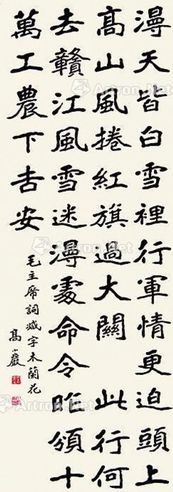 漫天皆白雪裡行軍情更迫頭上
髙山風捲紅旗過大關 此行何
去贛江風雪迷漫處命令昨頒十
萬工農下吉安
毛主席詞減字木蘭花
髙小巖